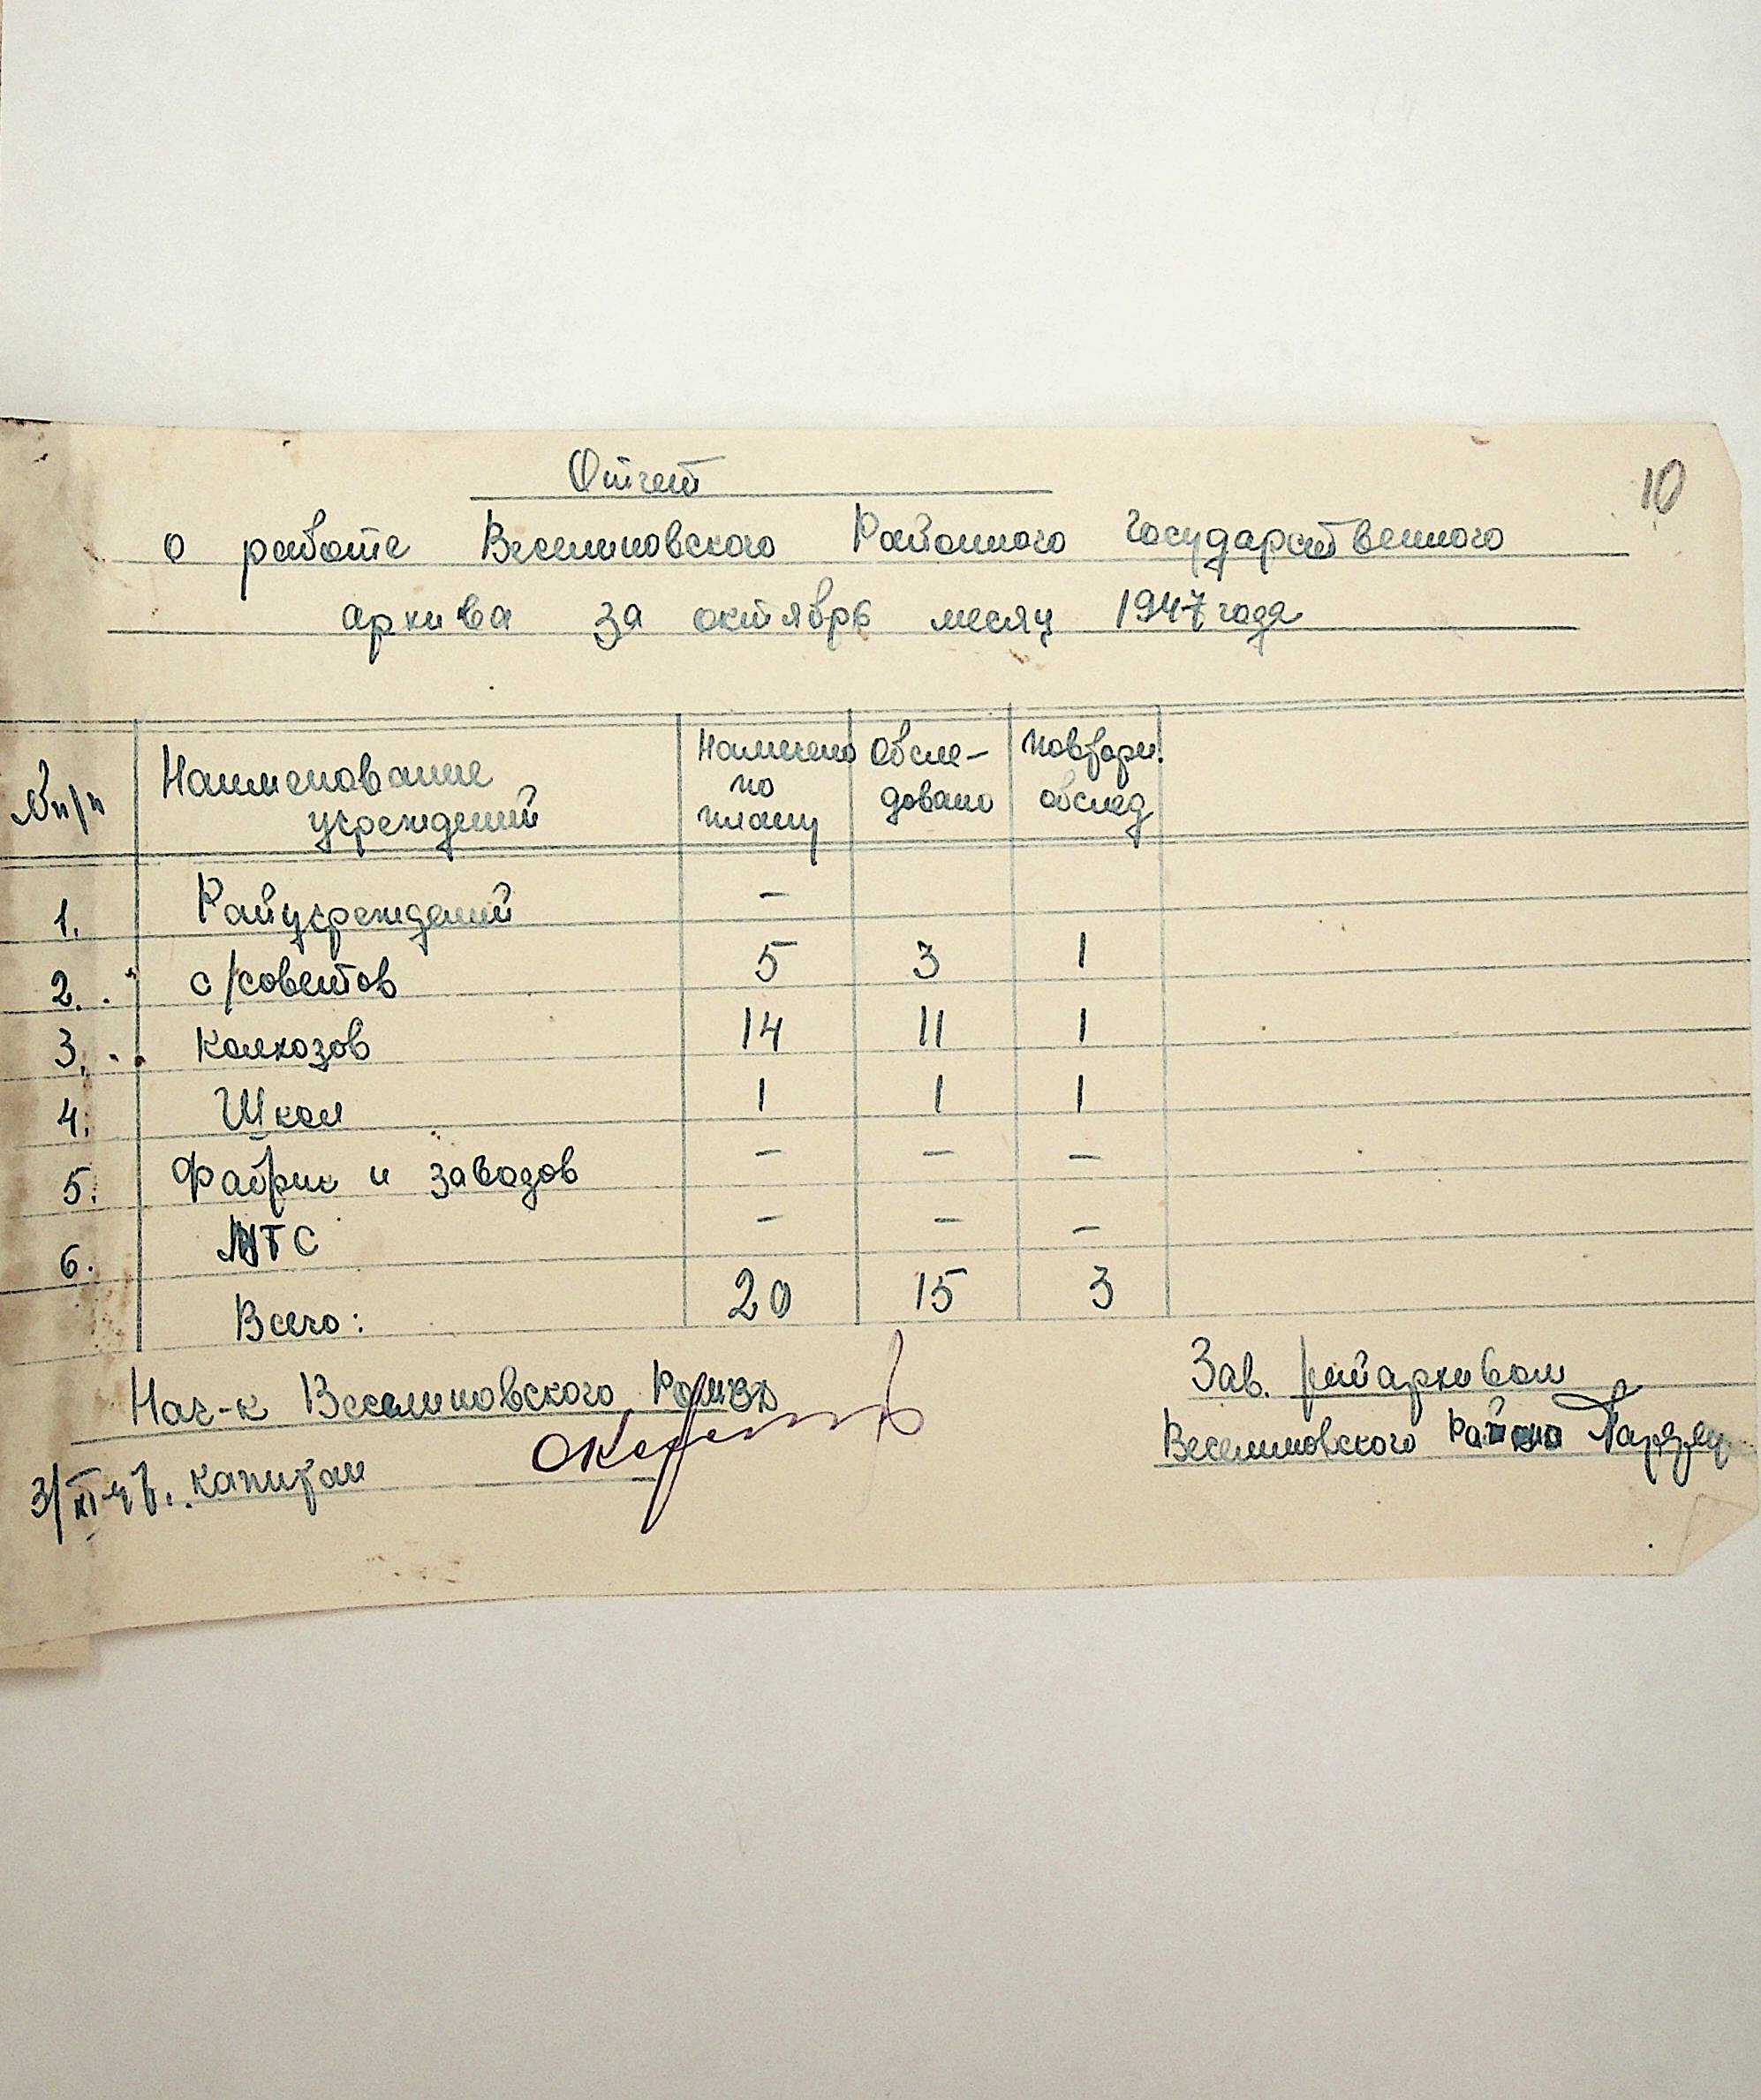 10
Отчет
о работе Веселиновского Районного Государственного
архива за октябрь месяц 1947 года
№ п/п Наименование учреждений Намечено по плану Обсле-довано Повторн. обслед
1. Райучреждений –
2. с/советов 5 3 1
3. Колхозов 14 11 1
4. Школ 1 1 1
5. Фабрик и заводов – – –
6. МТС – – –
Всего: 20 15 3
Нач-к Веселиновского РОМВД
3/XI-47. капитан
Зав. райархивом
Веселиновского Района